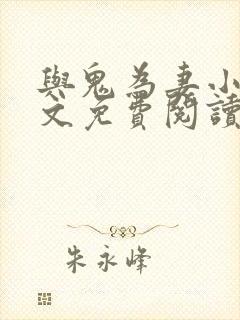 與鬼為妻小
文免費閱讀
朱永峰